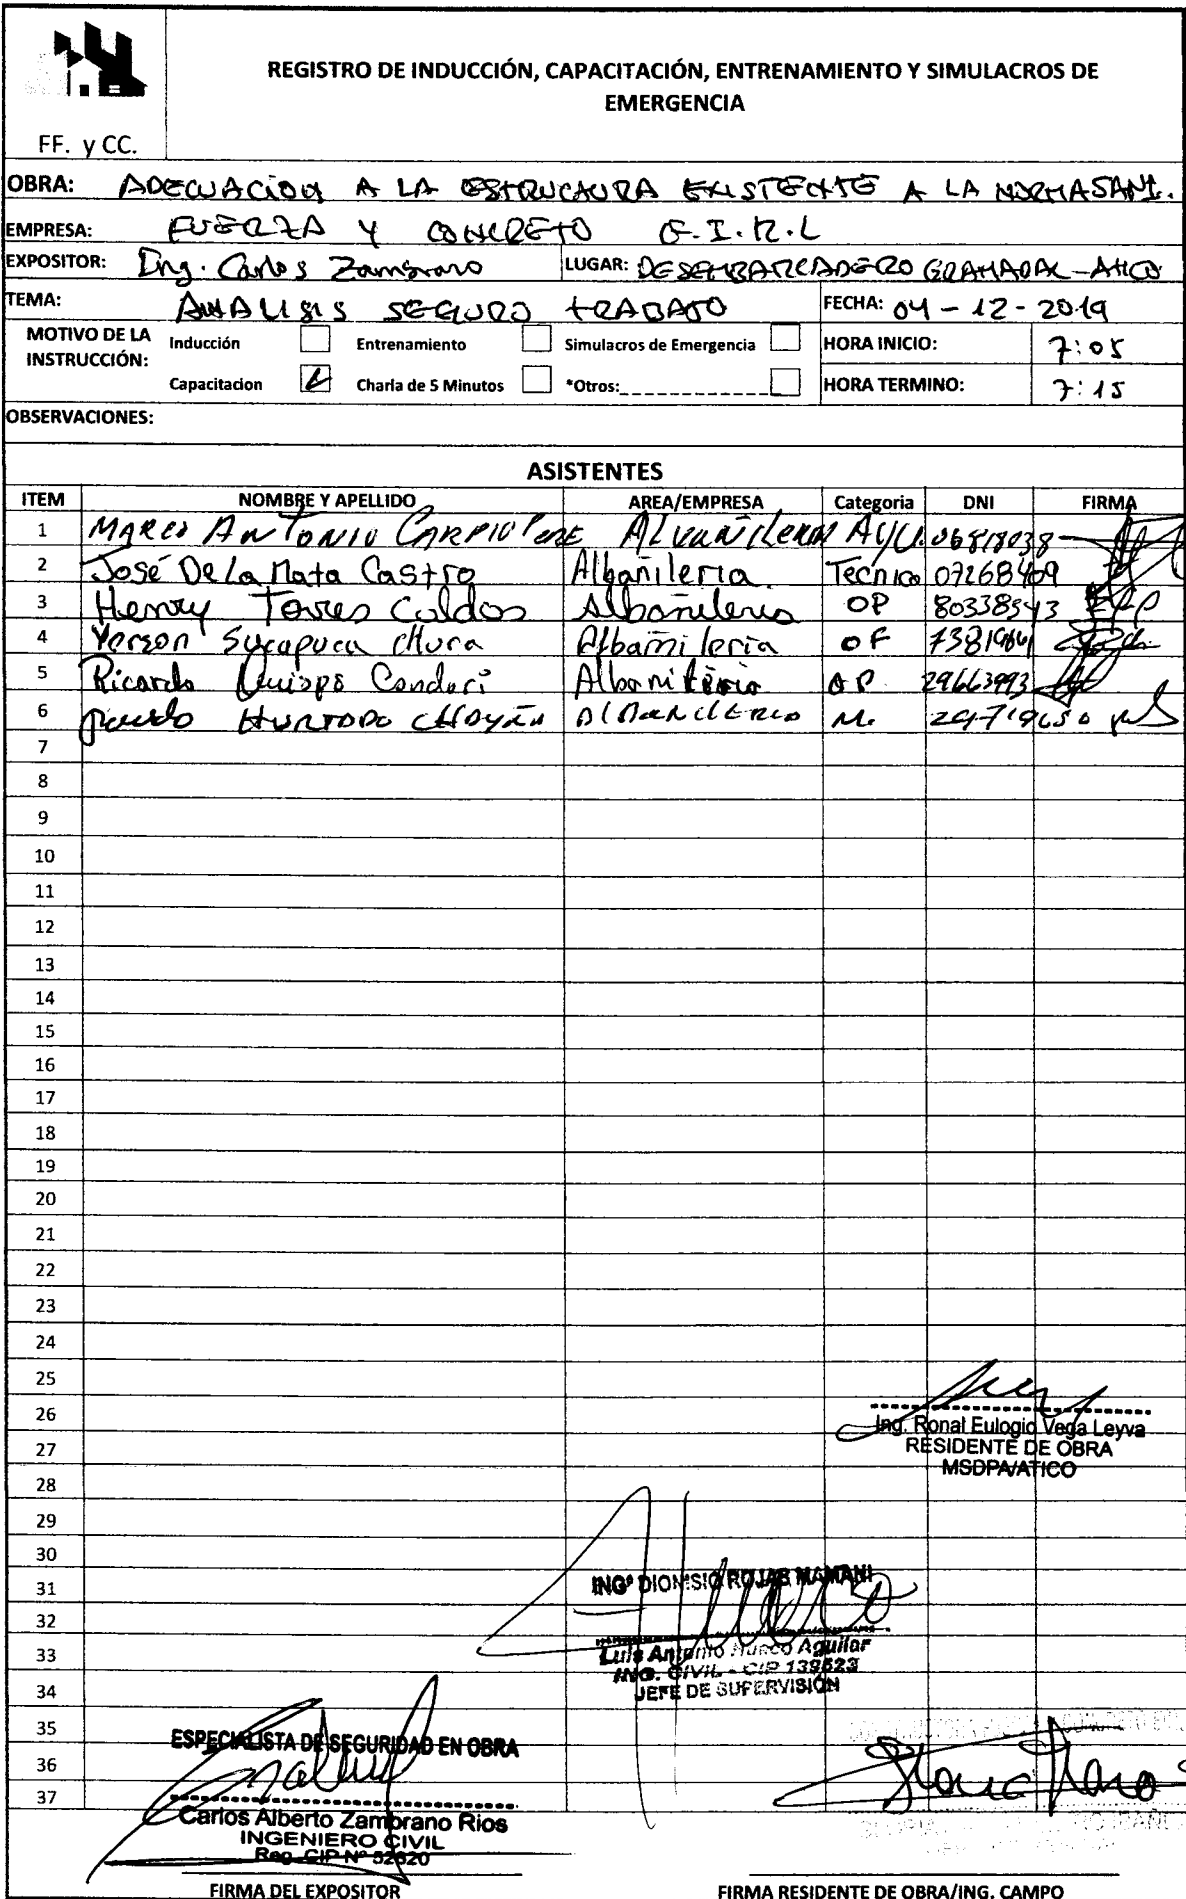 REGISTRO DE INDUCCIÓN, CAPACITACIÓN, ENTRENAMIENTO Y SIMULACROS DE
EMERGENCIA
FF. y CC.
OBRA: ADECUACION A LA ESTRUCTURA EXISTENTE A LA NORMA SANI.
EMPRESA: FUERZA Y CONCRETO E.I.R.L
EXPOSITOR: Ing. Carlos Zambrano LUGAR: DESEMBARCADERO GRAMADAL - ATICO
TEMA: ANALISIS SEGURO TRABAJO FECHA: 04 - 12 - 2019
MOTIVO DE LA INSTRUCCIÓN: Inducción Entrenamiento Simulacros de Emergencia HORA INICIO: 7:05
Capacitacion Charla de 5 Minutos *Otros: HORA TERMINO: 7:15
OBSERVACIONES:
ASISTENTES
ITEM NOMBRE Y APELLIDO AREA/EMPRESA Categoria DNI FIRMA
1 MARCO ANTONIO CARPIO 06818038
2 José De La Mata Castro Albañileria Tecnico 07268409
3 Henry Torres Caldos Albañileria OP 80338543
4 Yerson Sucapuca Albañileria OF
5 Ricardo Quispe Condori Albañileria OP 29663993
6 HURTADO M.
7
8
9
10
11
12
13
14
15
16
17
18
19
20
21
22
23
24
25
26
27
28
29
30
31
32
33
34
35
36
37
Ing. Ronal Eulogio Vega Leyva
RESIDENTE DE OBRA
MSDPA/ATICO
INGº DIONISIO ROJAS MAMANI
Luis Antonio Aguilar
ING. CIVIL - CIP 139523
JEFE DE SUPERVISIÓN
ESPECIALISTA DE SEGURIDAD EN OBRA
Carlos Alberto Zambrano Rios
INGENIERO CIVIL
Reg. CIP Nº 52620
FIRMA DEL EXPOSITOR FIRMA RESIDENTE DE OBRA/ING. CAMPO